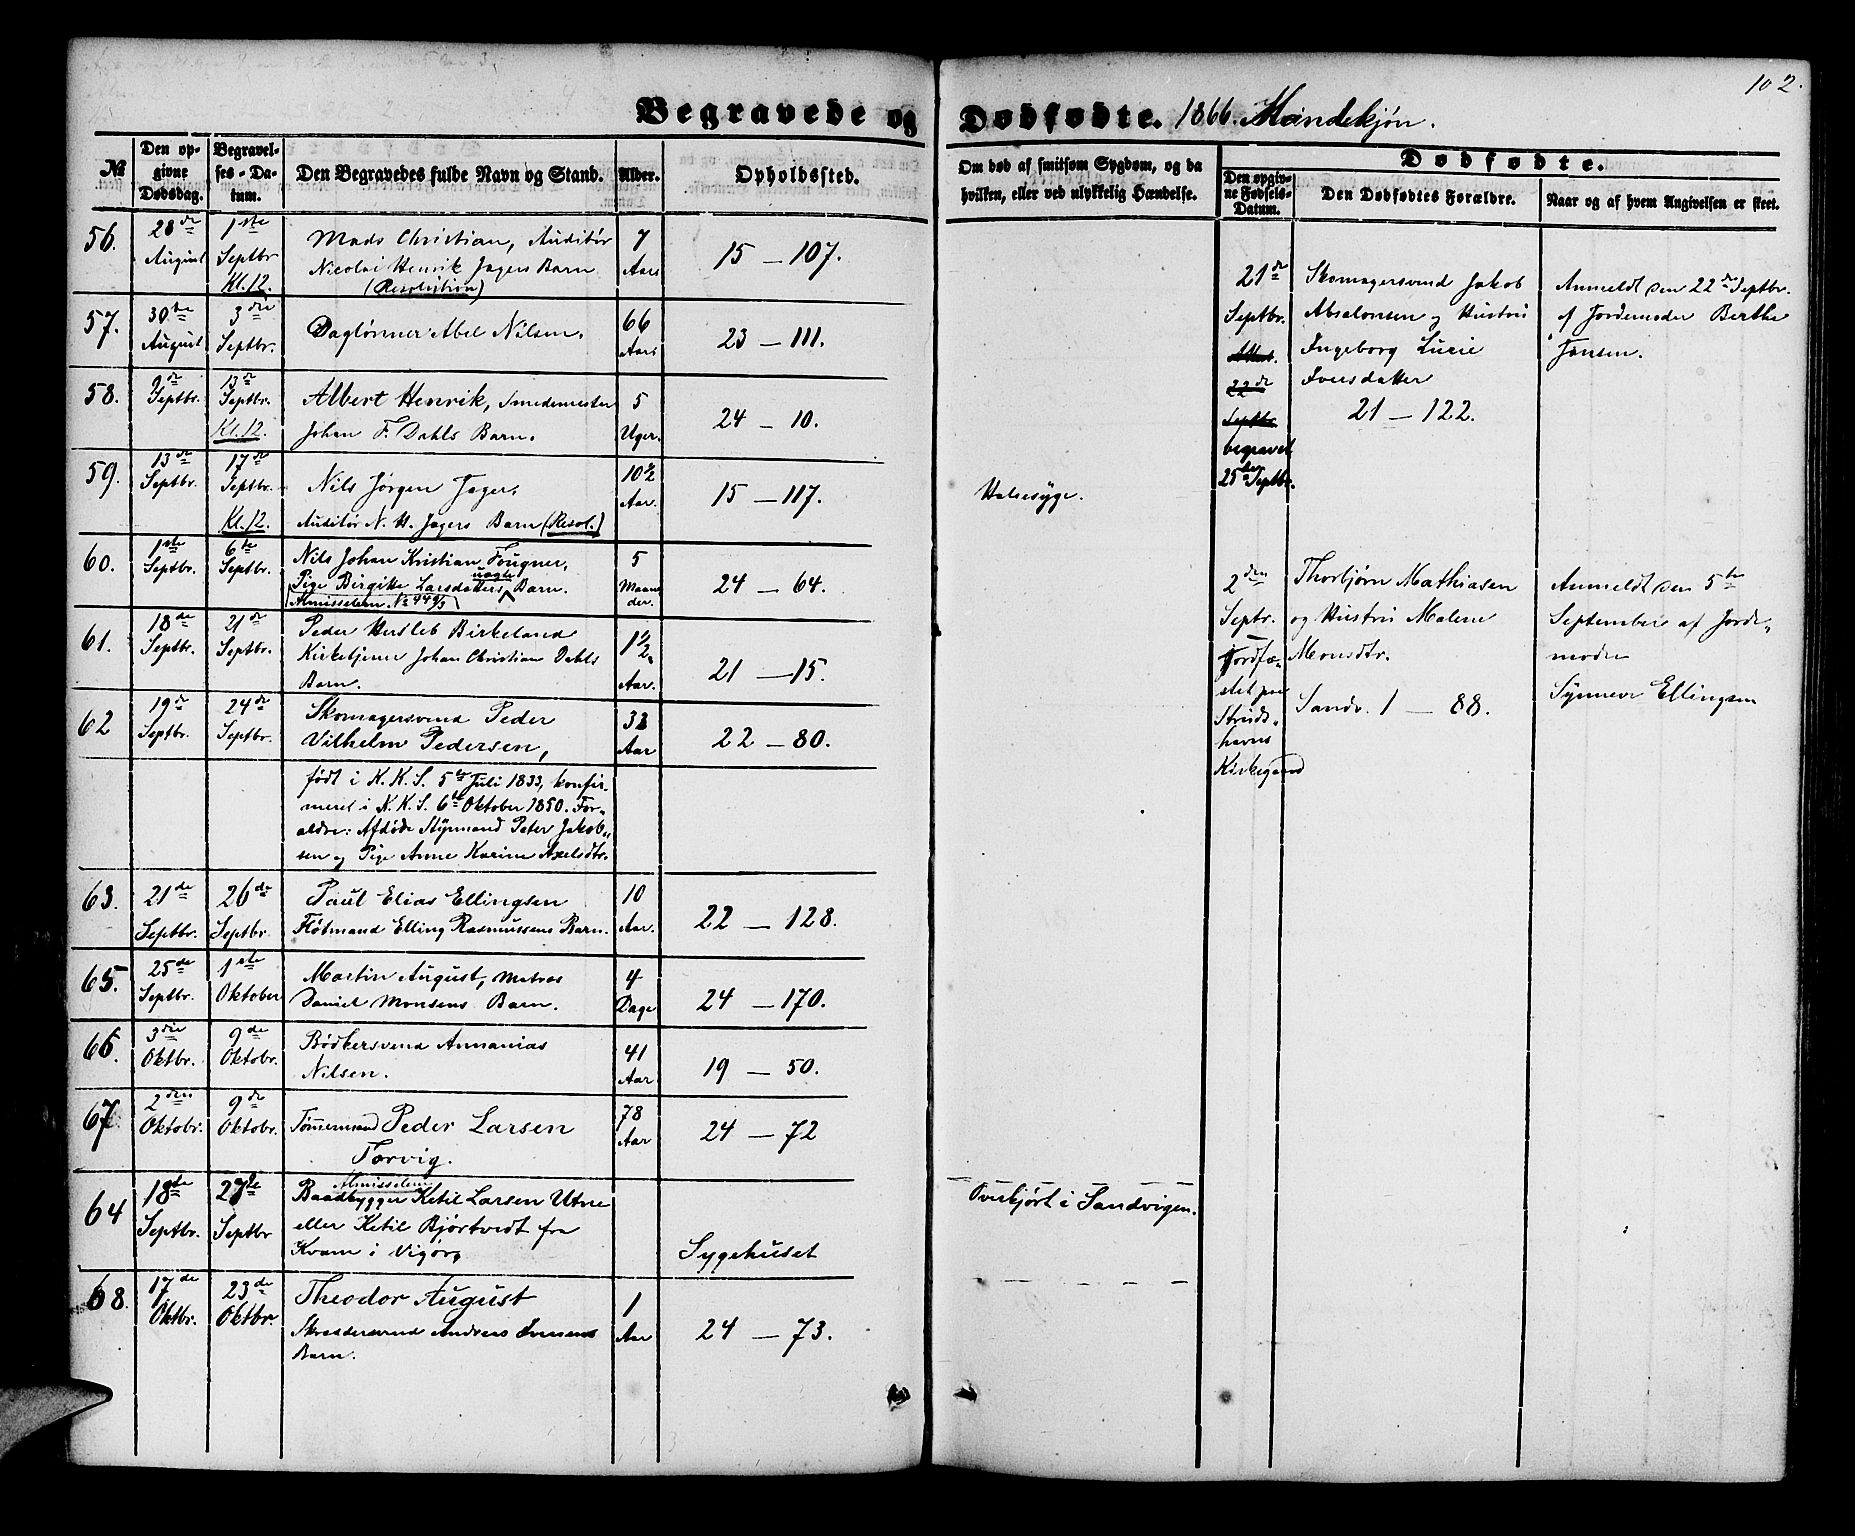 102.
Begravede og Dødfødte. 1866. Mandekjøn.
№
Den opgivne Dødsdag.
Begravelses-Datum.
Den Begravedes fulde Navn og Stand.
Alder.
Opholdssted.
Om død af smitsom Sygdom, og da hvilken, eller ved ulykkelig Hændelse.
Dødfødte.
Den opgivne Fødsels-Datum.
Den Dødfødtes Forældre.
Naar og af hvem Angivelsen er skeet.
56.
28de August
1ste Septbr Kl. 12.
Mads Christian, Auditør
Nicolai Henrik Jagers Barn
(Resolution)
7 Aars
15 — 107.
57.
30te August
3die Septbr.
Daglønner Abel Nilsen.
66 Aars
23 — 111.
58.
9de Septbr.
13de Septbr. Kl. 12.
Albert Henrik, Smedemester
Johan F. Dahls Barn.
5 Uger.
24 — 10.
59.
13de Septbr.
17de Septbr. Kl. 12.
Nils Jørgen Jager,
Auditør N. H. Jagers Barn (Resol.)
10½ Aar.
15 — 117.
Halsesyge.
60.
1ste Septbr.
6te Septbr.
Nils Johan Kristian Fougner,
Pige Birgitte Larsdatters uægte Barn.
Almisselem. №
5 Maaneder.
24 — 64.
61.
18de Septbr.
21de Septbr.
Peder Hersleb Birkeland
Kirketjener Johan Christian Dahls
Barn.
1½ Aar.
21 — 15.
62
19de Septbr.
24de Septbr.
Skomagersvend Peder
Vilhelm Pedersen,
33 Aar
22 — 80.
født i K. K. S. 5te Juli 1833, konfir-
meret i N. K. S. 6te Oktober 1850. For-
ældre: Afdøde Styrmand Peter Jakob-
sen og Pige Anne Karine Axelsdtr.
63.
21de Septbr.
26de Septbr.
Paul Elias Ellingsen
Fløtmand Elling Rasmussens Barn.
10 Aar.
22 — 128.
65.
25de Septbr.
1ste Oktober
Martin August, Matros
Daniel Monsens Barn.
4 Dage
24 — 170.
66.
3die Oktbr.
9de Oktobr.
Bødkersvend Annanias
Nilsen.
41 Aar
19 — 50.
67.
2den Oktobr.
9de Oktobr.
Tømmermand Peder Larsen
Torvig.
78 Aar
24 — 72
64
18de Septbr.
27de Septbr
Almisselem
Baadbygger Ketil Larsen Utne
eller Ketil Bjørtvedt fra
Kvam i Vigørg
Sygehuset
Overkjørt i Sandvigen.
68.
17de Oktbr.
23de Oktbr.
Theodor August
Skræddersvend Andreas Iversens
Barn.
1 Aar
24 — 73.
21de
Septbr.
22de
Septbr.
begravet
25de Septbr.
Skomagersvend Jakob
Absalonsen og Hustru
Ingeborg Lucie
Iversdatter
21 — 122.
Anmeldt den 22de Septbr.
af Jordemoder Berthe
Jansen.
2den
Septbr.
Jordfæ-
stet paa
Struds-
havns
Kirkegaard
Thorbjørn Mathiasen
og Hustru Malene
Monsdtr.
Sandv. 1 — 88.
Anmeldt den 5te
September af Jorde-
moder
Synneve Ellingsen